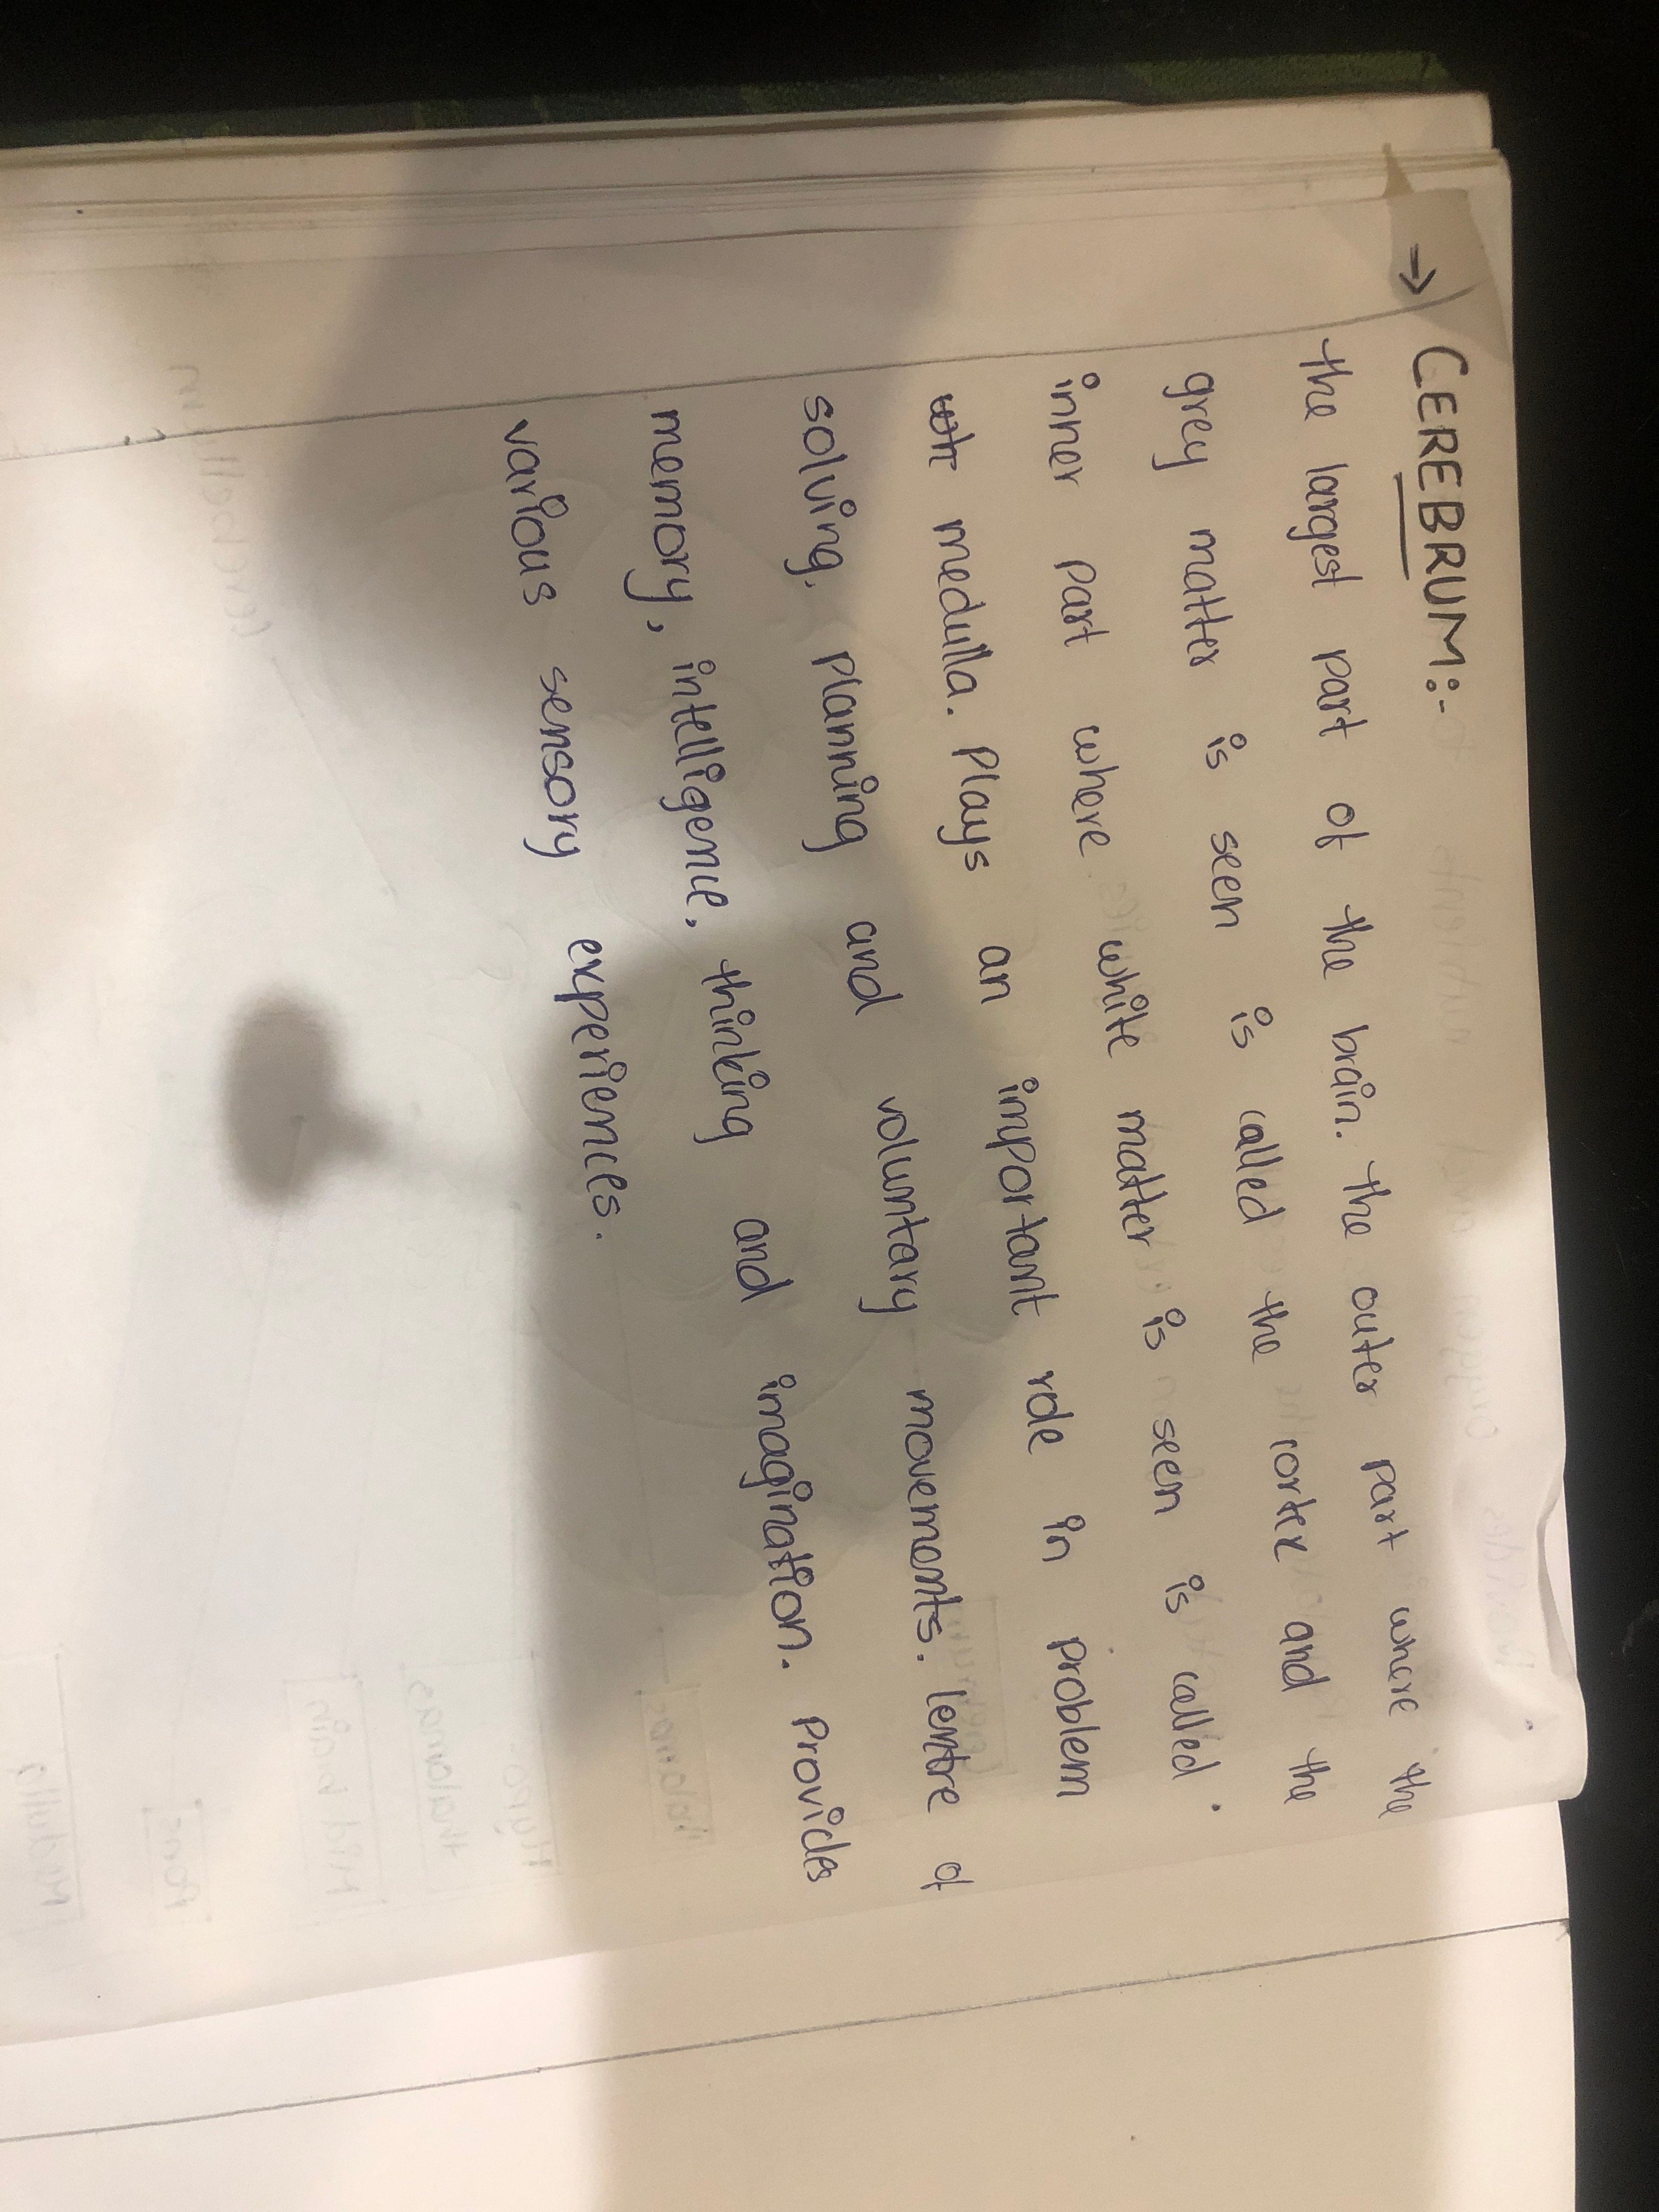 → CEREBRUM:-
the largest part of the brain. the outer part where the
grey matter is seen is called the cortex and the
inner part where white matter is seen is called
medulla. Plays an important role in problem
solving, planning and voluntary movements. Centre of
memory, intelligence, thinking and imagination. Provides
various sensory experiences.